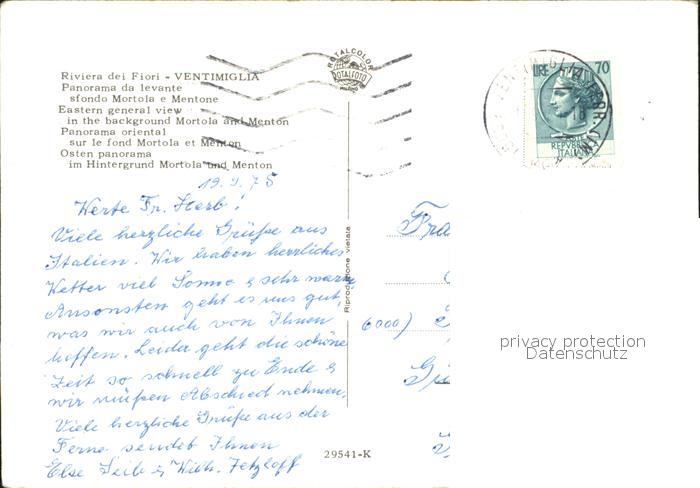 Riviera dei Fiori - VENTIMIGLIA
Panorama da levante
sfondo Mortola e Mentone
Eastern general view
in the background Mortola and Menton
Panorama oriental
sur le fond Mortola et Menton
Osten panorama
im Hintergrund Mortola und Menton
ROTALCOLOR
ROTALFOTO
MILANO
LIRE 70
POSTE
REPVBBLICA
ITALIANA
VENTIMIGLIA
19.9.75
Werte Fr. Herb!
Viele herzliche Grüße aus
Italien. Wir haben herrliches
Wetter viel Sonne & sehr warm
Ansonsten geht es uns gut,
was wir auch von Ihnen
hoffen. Leida geht die schöne
Zeit so schnell zu Ende &
wir müßen Abschied nehmen,
Viele herzliche Grüße aus der
Ferne sendet Ihnen
Else Leib & Wilh.
Riproduzione vietata
Fra
6000)
29541-K
privacy protection
Datenschutz